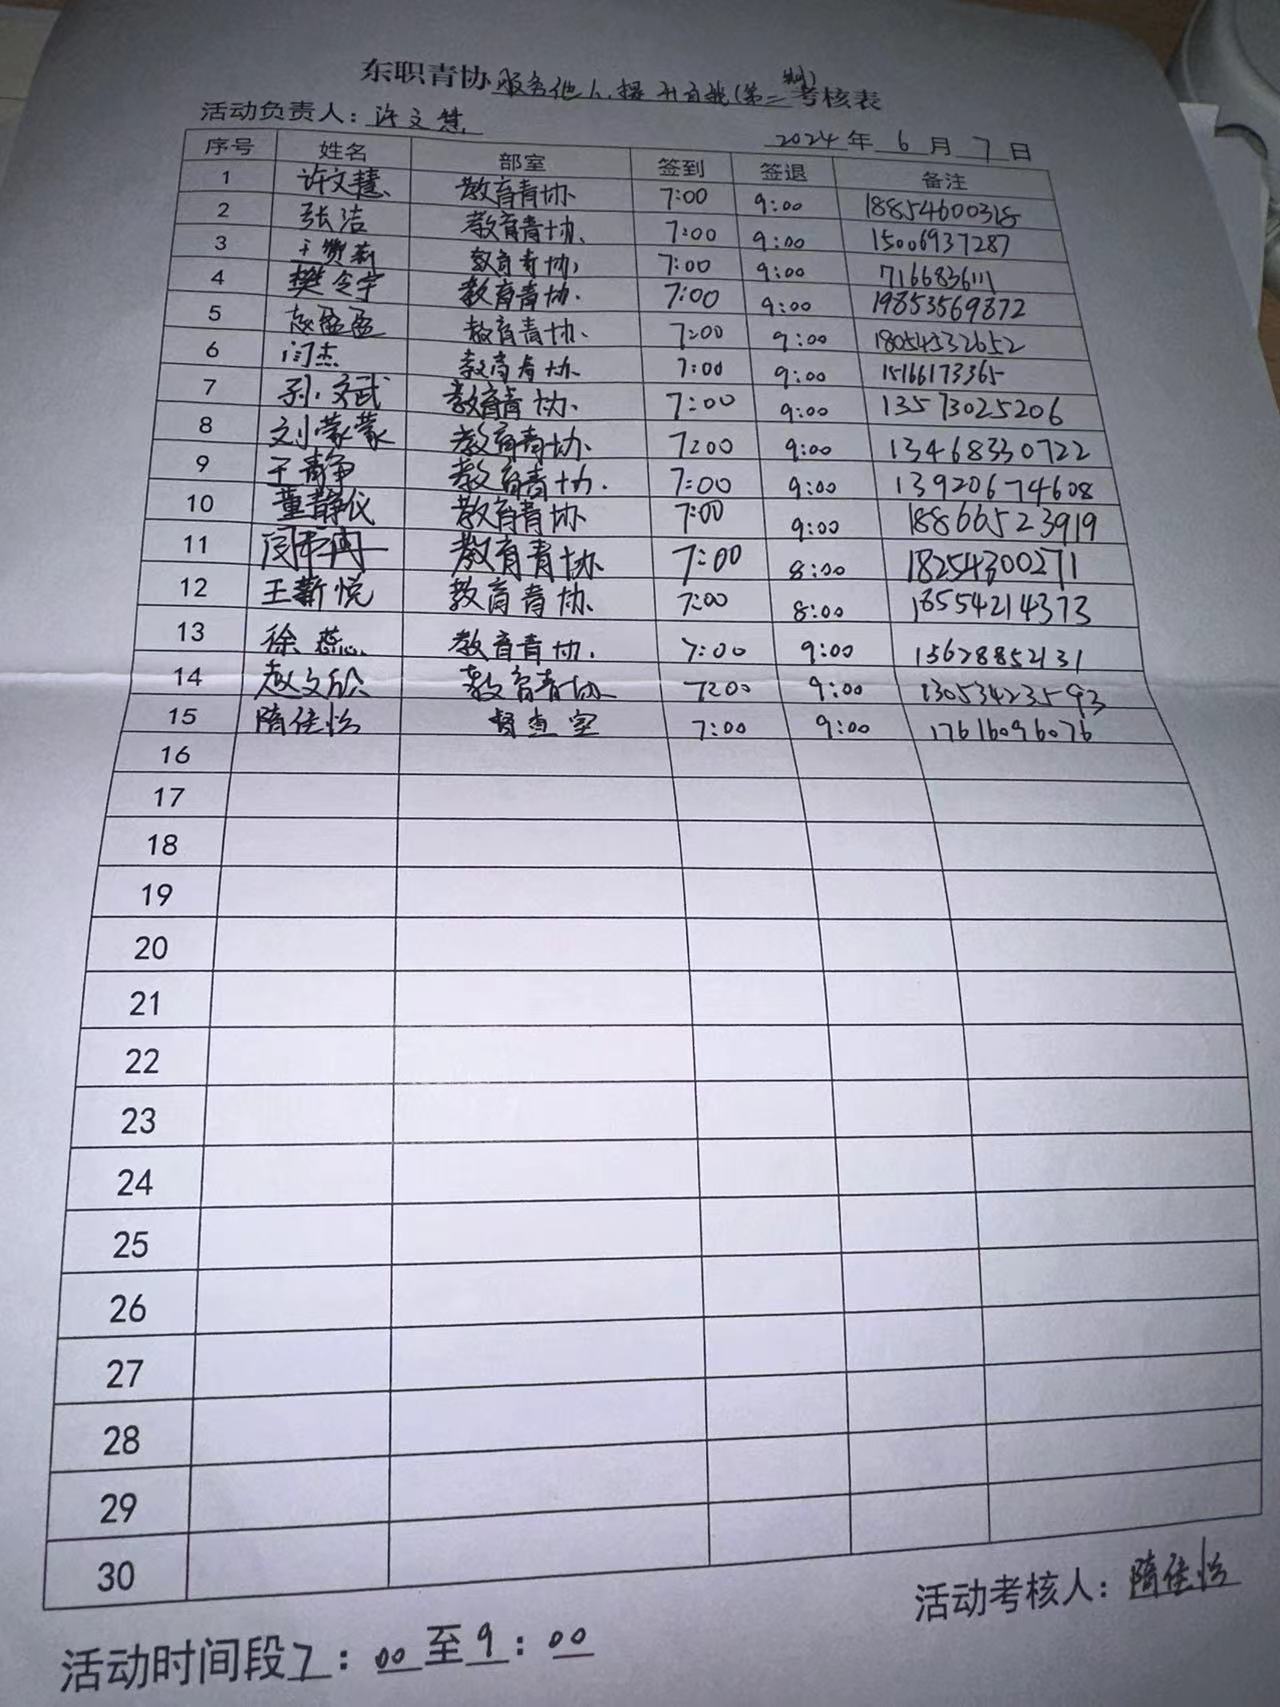 东职青协服务他人,提升自我(第二期)考核表
活动负责人：许文慧
2024年6月7日
序号 姓名 部室 签到 签退 备注
1 许文慧 教育青协 7:00 9:00 18854600318
2 张洁 教育青协 7:00 9:00 15006937287
3 教育青协 7:00 9:00 7166836111
4 樊令宇 教育青协 7:00 9:00 19853569872
5 赵盈盈 教育青协 7:00 9:00 18054532652
6 闫杰 教育青协 7:00 9:00 15166173365
7 孙文武 教育青协 7:00 9:00 13573025206
8 刘蒙蒙 教育青协 7:00 9:00 13468330722
9 于静 教育青协 7:00 9:00 13920674608
10 董静仪 教育青协 7:00 9:00 18866523919
11 教育青协 7:00 8:00 18254300271
12 王新悦 教育青协 7:00 8:00 18554214373
13 徐蕊 教育青协 7:00 9:00 15628852131
14 赵文欣 教育青协 7:00 9:00 13053423593
15 隋佳怡 督查室 7:00 9:00 17616096076
16
17
18
19
20
21
22
23
24
25
26
27
28
29
30
活动考核人：隋佳怡
活动时间段7：00至9：00